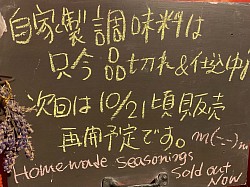 自家製調味料は
只今品切れ&仕込中!
次回は10/21頃販売
再開予定です。m(--)m
Homemade Seasonings
Sold out
Now